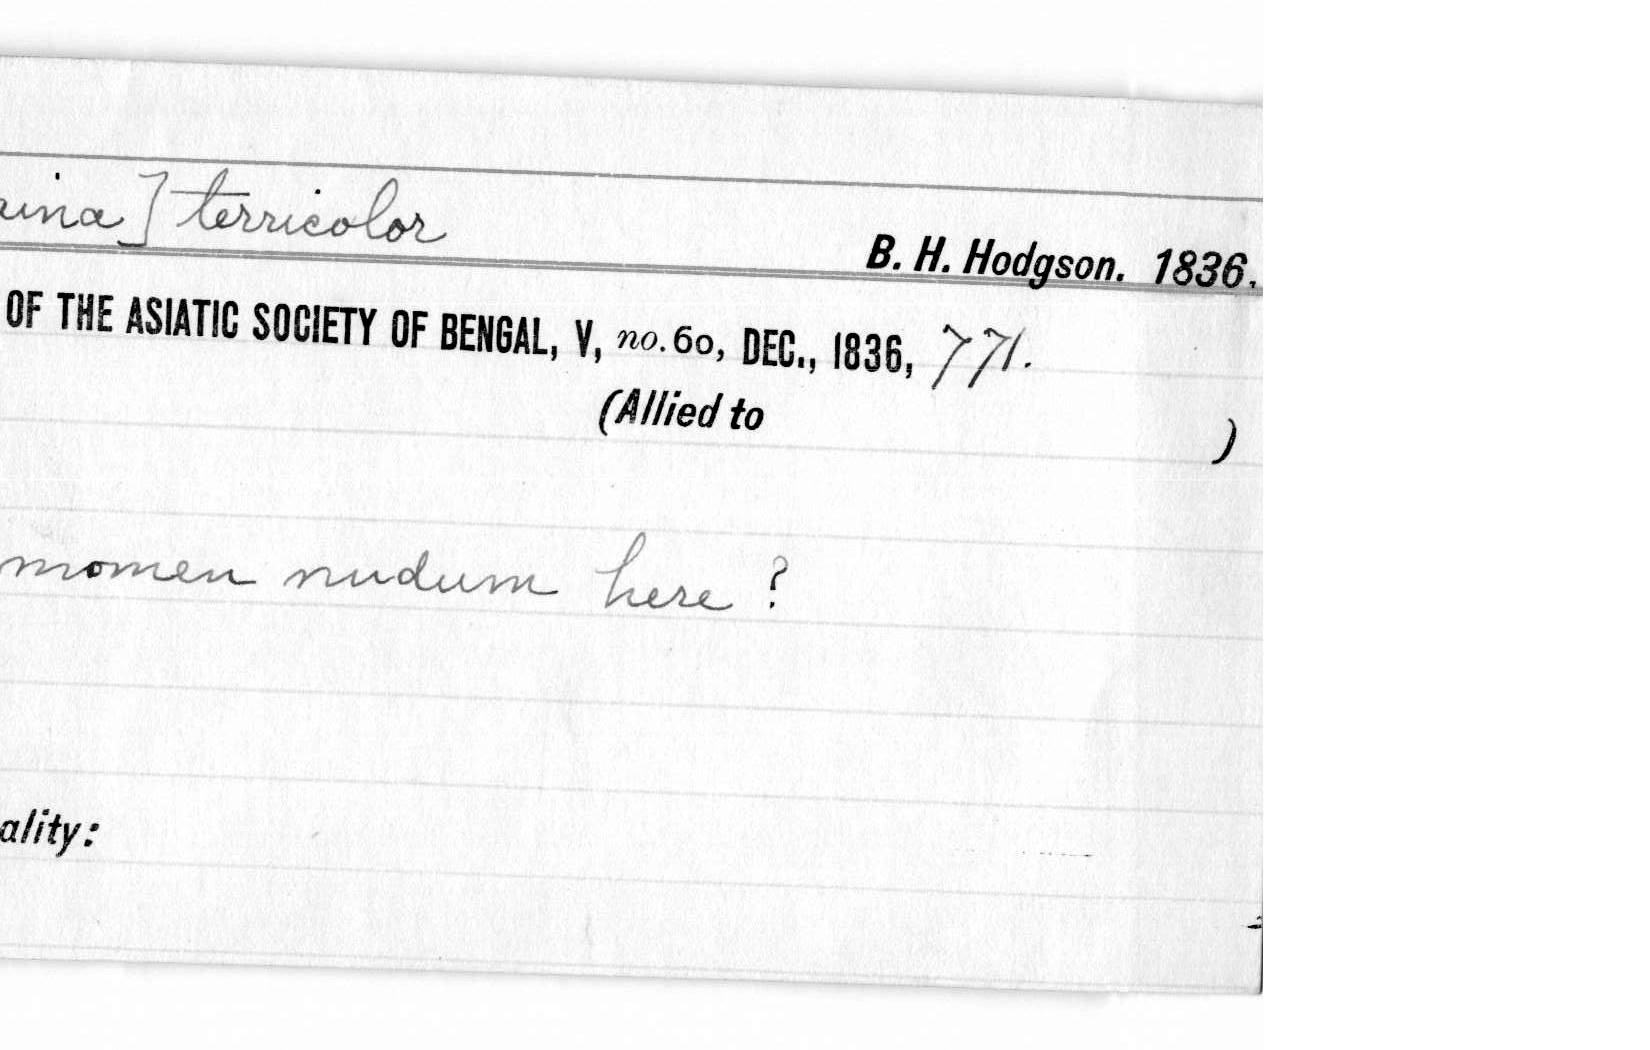 rina] terricolor
B. H. Hodgson. 1836.
OF THE ASIATIC SOCIETY OF BENGAL, V, no. 60, DEC., 1836, 771.
(Allied to )
nomen nudum here?
ality: